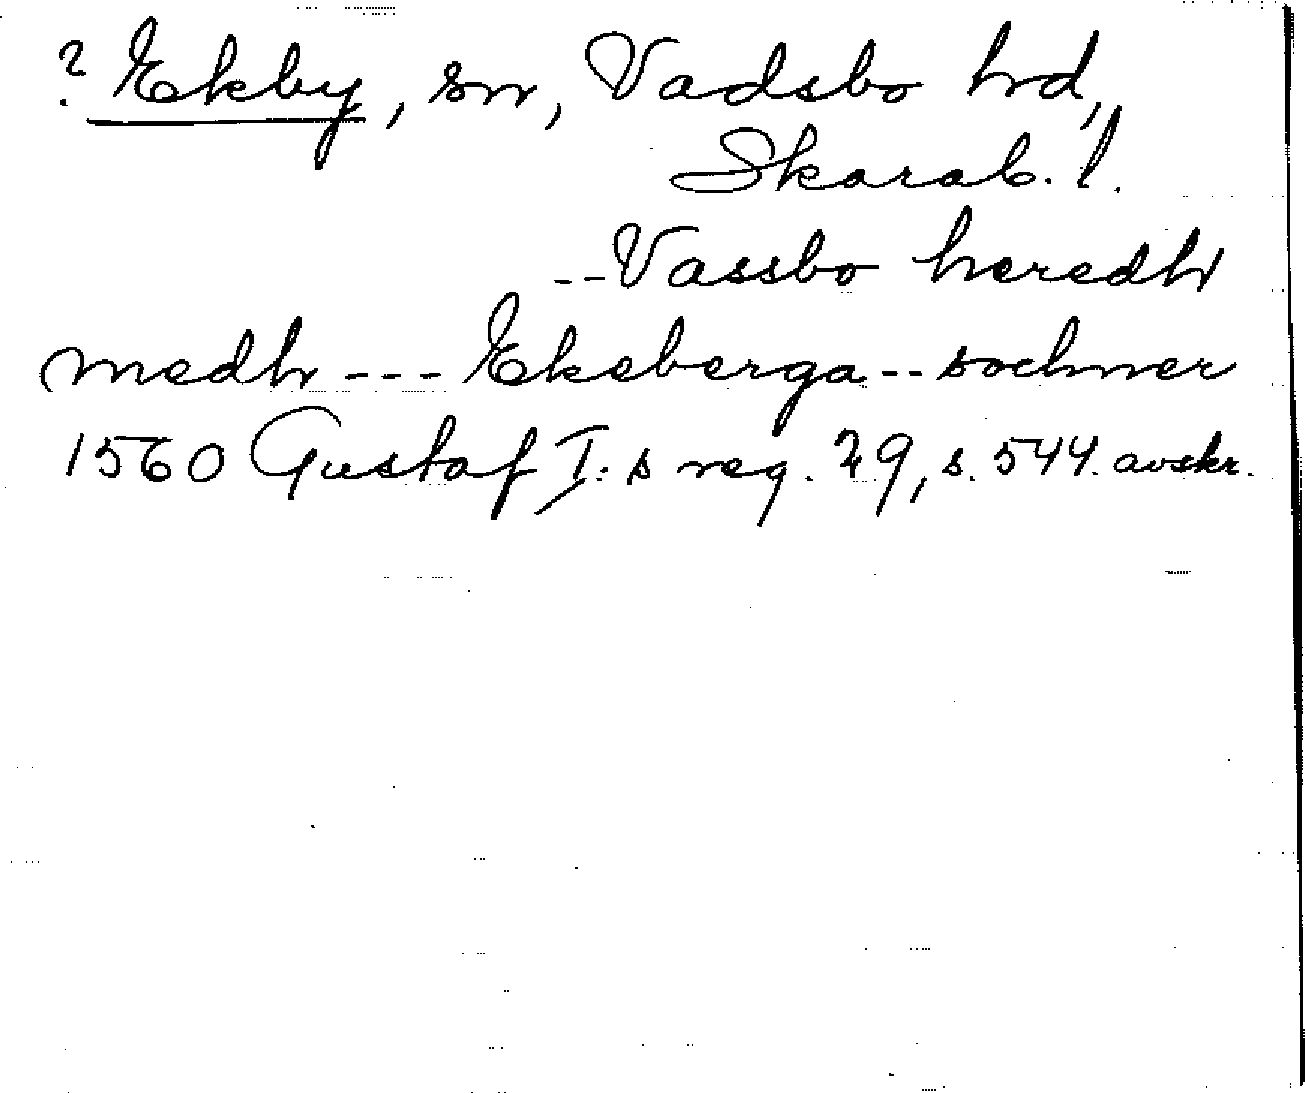 ? Ekby, sn, Vadsbo hd,
Skarab. l.
--Vassbo heredh
medh --- Ekeberga -- sochner
1560 Gustaf I:s reg. 29, s. 544. avskr.